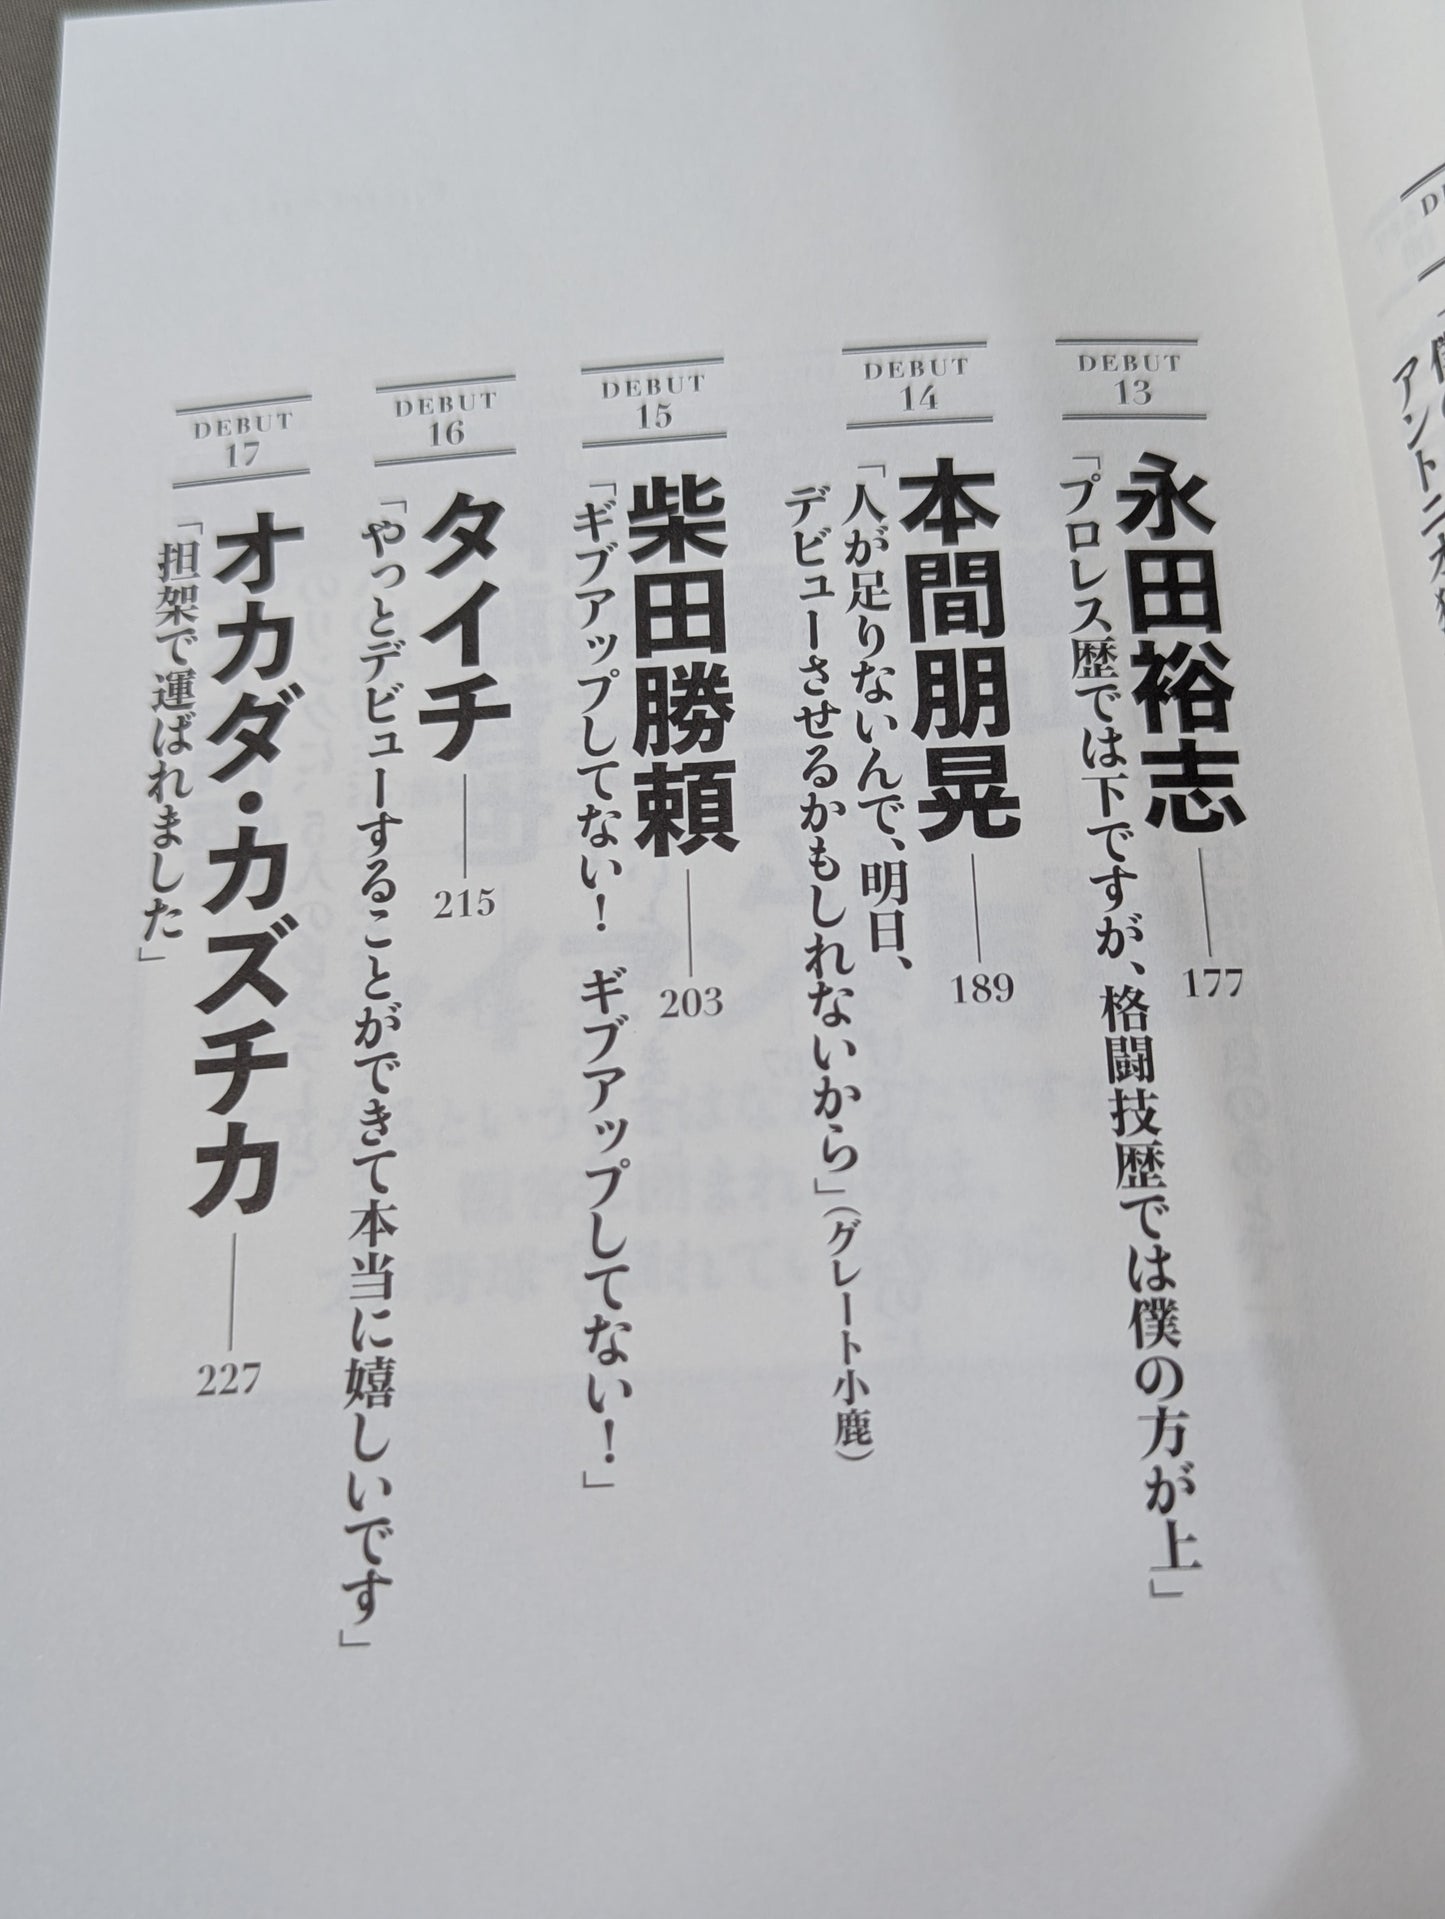 DEBUT
13
永田裕志——177
「プロレス歴では下ですが、格闘技歴では僕の方が上」
DEBUT
14
本間朋晃——189
「人が足りないんで、明日、
デビューさせるかもしれないから」(グレート小鹿)
DEBUT
15
柴田勝頼——203
「ギブアップしてない! ギブアップしてない!」
DEBUT
16
タイチ——215
「やっとデビューすることができて本当に嬉しいです」
DEBUT
17
オカダ・カズチカ——227
「担架で運ばれました」